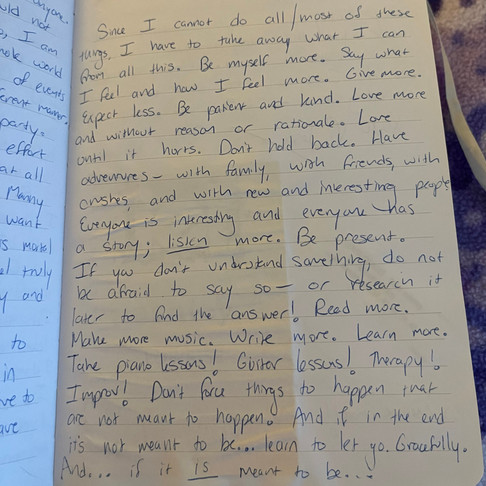 anyone.
uld not
, I am
hole world
of events
fferent manner.
party.
effort
at all
Manny
want
is
truly
y and
to
in
ve to
ave
Since I cannot do all/most of these
things, I have to take away what I can
from all this. Be myself more. Say what
I feel and how I feel more. Give more.
Expect less. Be patient and kind. Love more
and without reason or rationale. Love
until it hurts. Don't hold back. Have
adventures - with family, with friends, with
crushes, and with new and interesting people
Everyone is interesting and everyone has
a story; listen more. Be present.
If you don't understand something, do not
be afraid to say so - or research it
later to find the answer! Read more.
Make more music. Write more. Learn more.
Take piano lessons! Guitar lessons! Therapy!
Improv! Don't force things to happen that
are not meant to happen. And if in the end
it's not meant to be... learn to let go. Gracefully.
And... if it is meant to be...